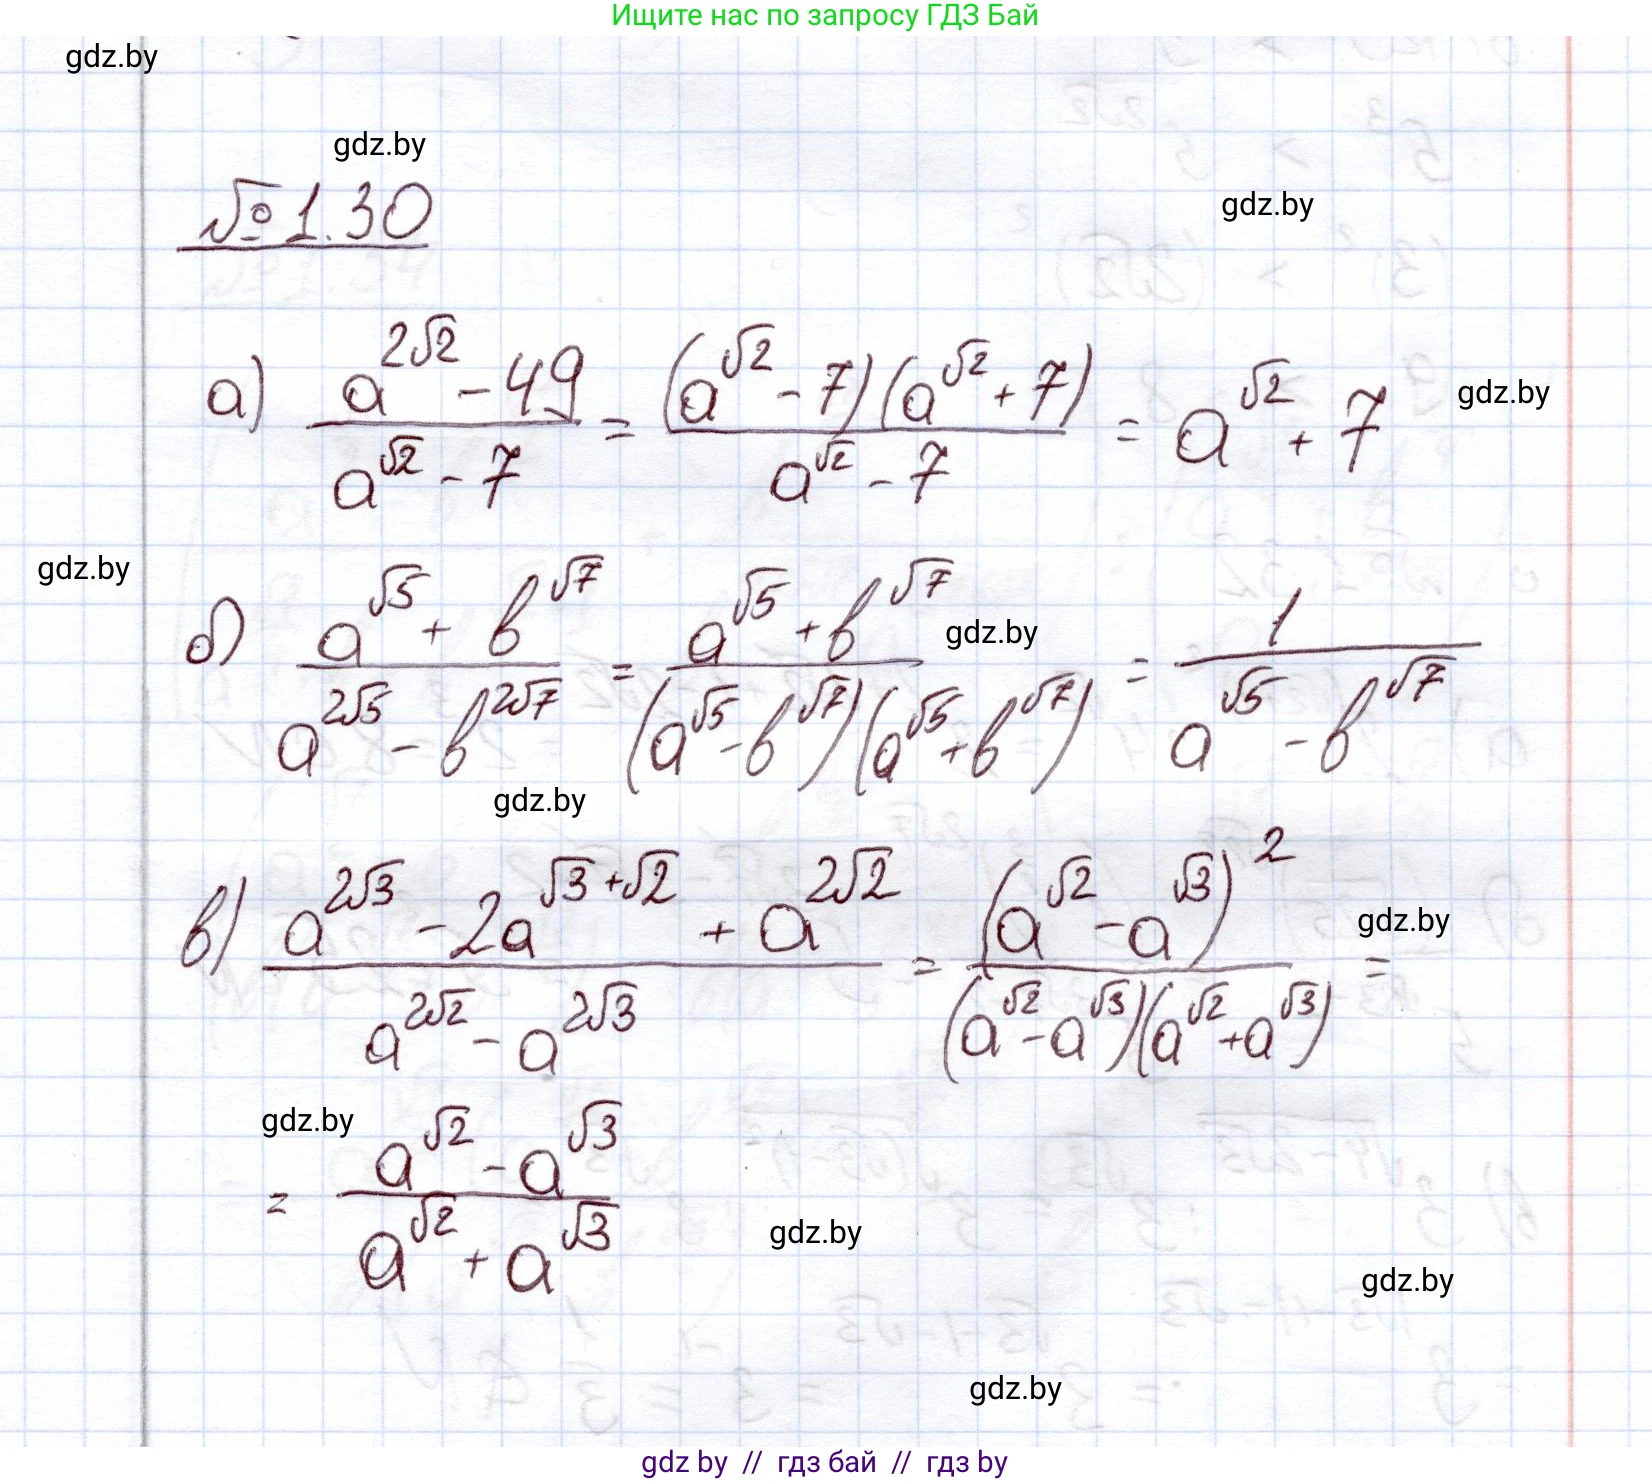 Ищите нас по запросу ГДЗ Бай
gdz.by
gdz.by
gdz.by
№ 1.30
а) (a^(2√2) - 49)/(a^(√2) - 7) = ((a^(√2) - 7)(a^(√2) + 7))/(a^(√2) - 7) = a^(√2) + 7
gdz.by
gdz.by
б) (a^(√5) + b^(√7))/(a^(2√5) - b^(2√7)) = (a^(√5) + b^(√7))/((a^(√5) - b^(√7))(a^(√5) + b^(√7))) = 1/(a^(√5) - b^(√7))
gdz.by
gdz.by
в) (a^(2√3) - 2a^(√3+√2) + a^(2√2))/(a^(2√2) - a^(2√3)) = (a^(√2) - a^(√3))^2/((a^(√2) - a^(√3))(a^(√2) + a^(√3))) =
gdz.by
gdz.by
= (a^(√2) - a^(√3))/(a^(√2) + a^(√3))
gdz.by
gdz.by
gdz.by
gdz by // гдз бай // гдз by